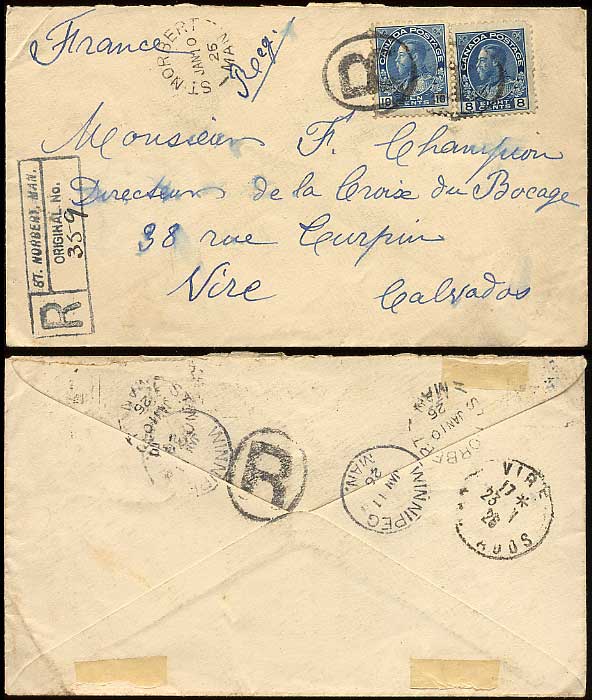 France
Reg.
ST. NORBERT
JAN 10
26
MAN.
R
CANADA POSTAGE
10 TEN CENTS 10
CANADA POSTAGE
8 EIGHT CENTS 8
Monsieur F. Champion
Directeur de la Croix du Bocage
38 rue Turpin
Vire Calvados
R
ST. NORBERT, MAN.
ORIGINAL No.
359
MAN
WINNI
R
WINNIPEG
JAN 11
26
MAN.
NORBERT
JAN 10
26
MAN
VIRE
17 *
23 - 1
26